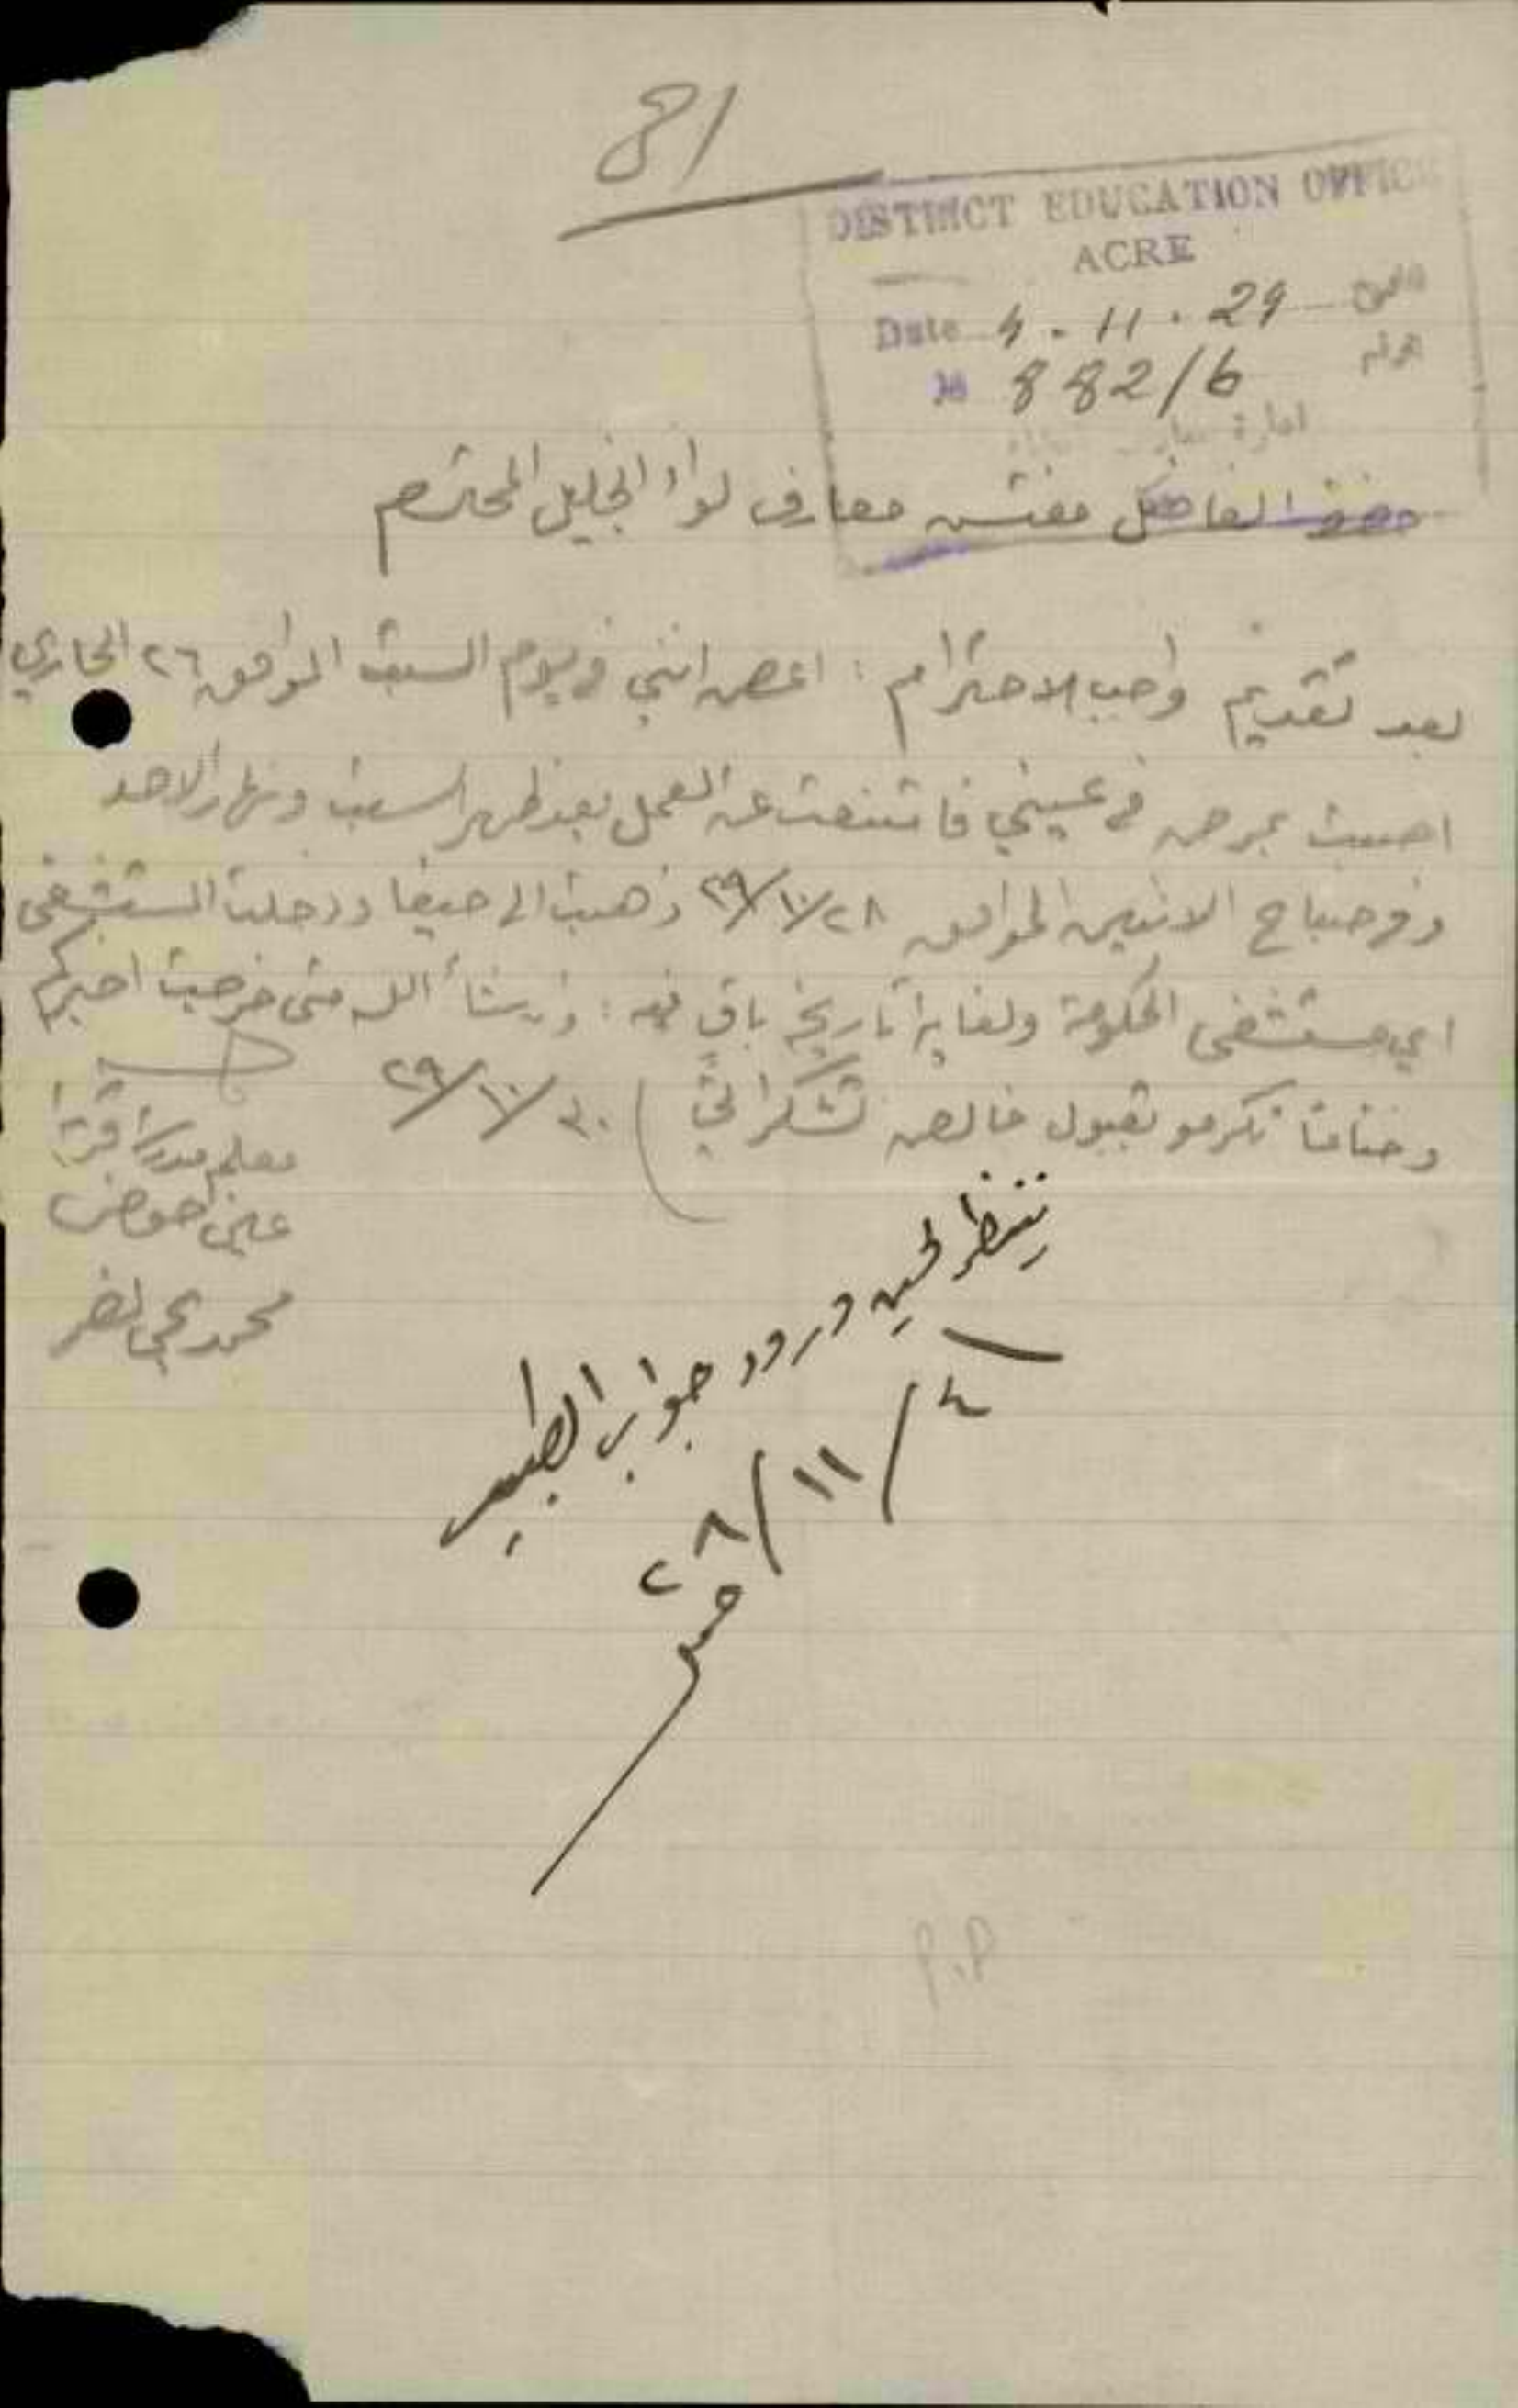 81
DISTRICT EDUCATION OFFICE
ACRE
Date 4 . 11 . 29
№ 882/6 الرقم
ادارة معارف
حضرة الفاضل مفتش معارف لواء الجليل المحترم
بعد تقديم واجب الاحترام : اعرض انني في يوم السبت الموافق ٢٦ الجاري
اصبت بمرض في عينيّ فامتنعت عن العمل بعد ظهر السبت ونهار الاحد
وفي صباح الاثنين الموافق ٢٨/١٠/٢٩ ذهبت الى حيفا ودخلت المستشفى
اي مستشفى الحكومة ولغاية تاريخ باق فيه : وان شاء الله متى خرجت اخبركم
وختاما تكرمو بقبول خالص تشكراتي ٣٠/١٠/٢٩
معلم مدرسة
عين حوض
محمد
ينتظر لحين ورود جواب الطبيب
٤/١١/٢٨
P.P